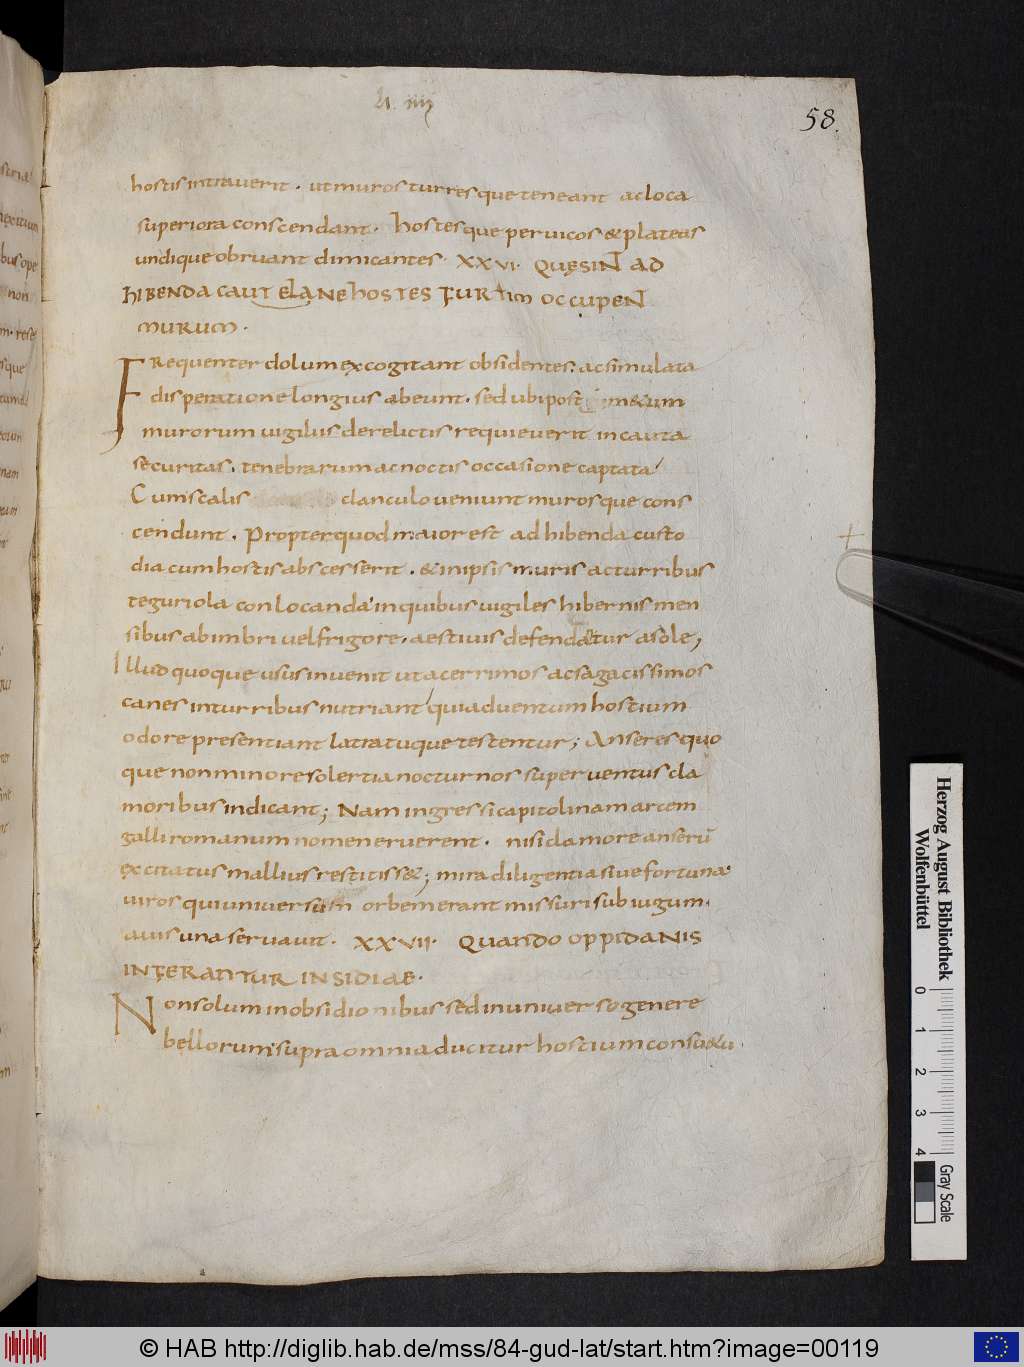 L. IIII
58.
hostis intraverit . ut muros turresque teneant ac loca
superiora conscendant . hostesque per vicos & plateas
undique obruant dimicantes . XXVI . QUĘ SINT AD
HIBENDA CAUTELA NE HOSTES FURTIM OCCUPENT
MURUM .
FRequenter dolum excogitant obsidentes . ac simulata
disperatione longius abeunt . sed ubi post m&um
murorum vigiliis derelictis requieverit incauta
securitas . tenebrarum ac noctis occasione captata
Cum scalis clanculo veniunt murosque cons
cendunt . Propter quod maior est adhibenda custo
dia cum hostis abscesserit . & in ipsis muris ac turribus
teguriola conlocanda in quibus vigiles hibernis men
sibus ab imbri vel frigore . aestivis defendatur a sole;
Illud quoque usus invenit ut acerrimos ac sagacissimos
canes in turribus nutriant qui adventum hostium
odore presentiant latratuque testentur; Anseres quo
que non minore solertia nocturnos superventus cla
moribus indicant; Nam ingressi capitolinam arcem
galli romanum nomen eruerent . nisi clamore anserū
excitatus mallius restitiss&; mira diligentia sive fortuna
viros qui universum orbem erant missuri sub iugum .
avis una servavit . XXVII . QUANDO OPPIDANIS
INFERANTUR INSIDIAE .
Non solum in obsidionibus sed in universo genere
bellorum supra omnia ducitur hostium consu&u
Herzog August Bibliothek
Wolfenbüttel
0 1 2 3 4
Gray Scale
© HAB http://diglib.hab.de/mss/84-gud-lat/start.htm?image=00119